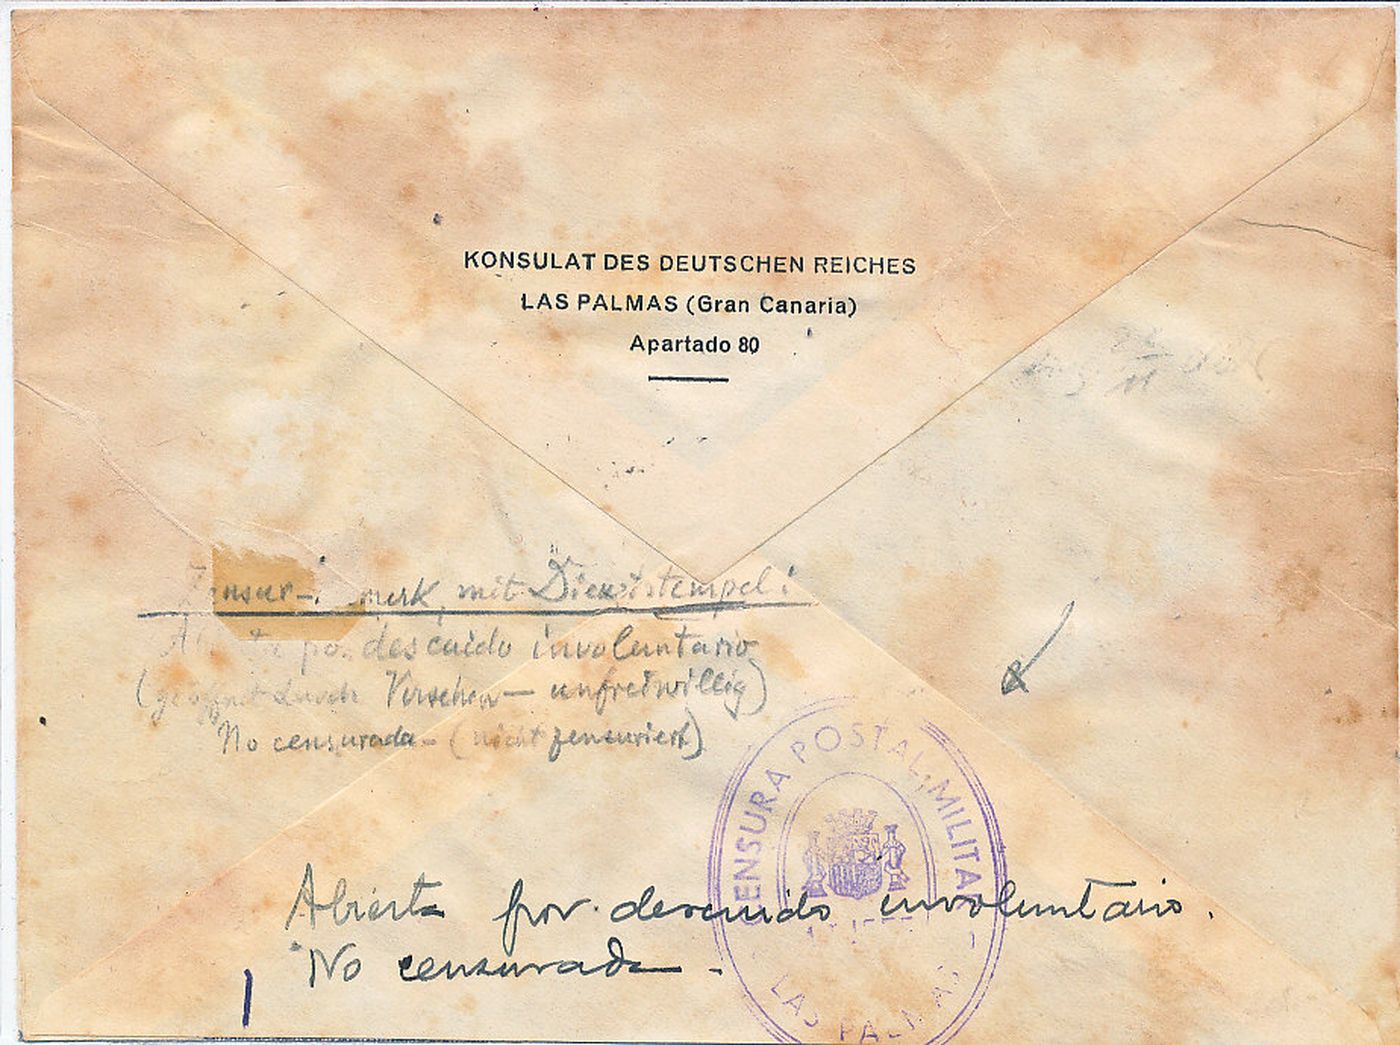 KONSULAT DES DEUTSCHEN REICHES
LAS PALMAS (Gran Canaria)
Apartado 80
mit Dienststempel:
descuido involuntario
(geöffnet durch Versehen — unfreiwillig)
No censurada - (nicht zensuriert)
CENSURA POSTAL, MILITAR
- LAS PALMAS -
Abierta por descuido involuntario.
No censurada -